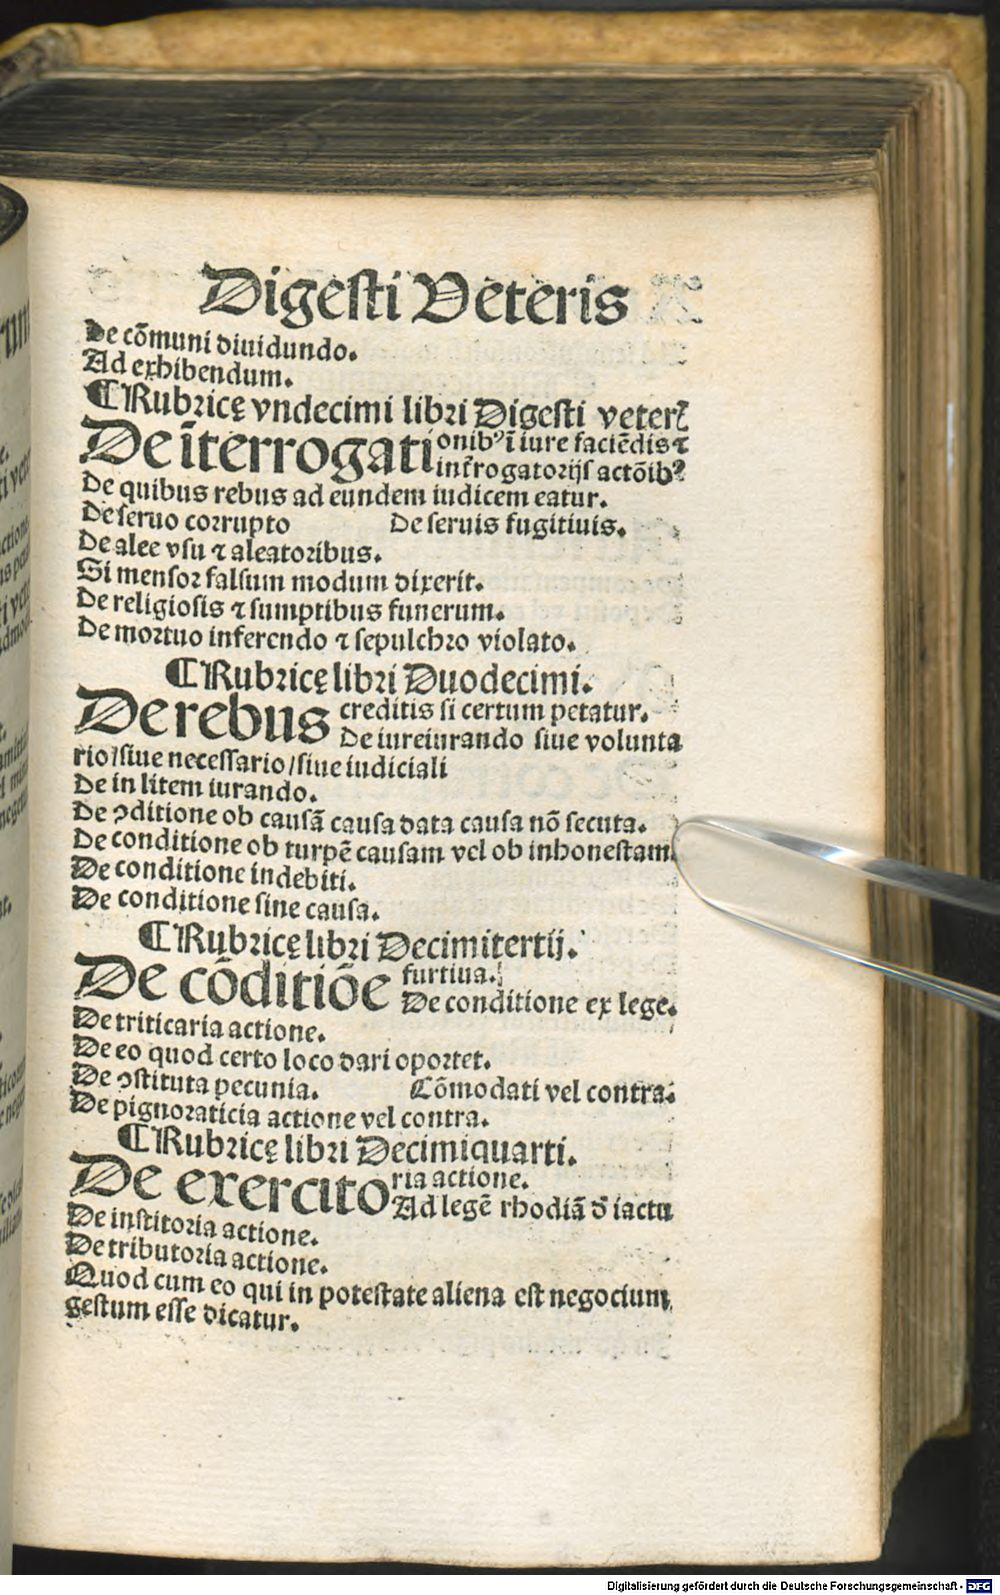 Digesti Veteris
De cõmuni diuidundo.
Ad exhibendum.
¶Rubricę vndecimi libri Digesti veterꝭ
De ĩterrogationibꝰ ĩ iure faciẽdis ⁊
inťrogatorijs actõibꝰ
De quibus rebus ad eundem iudicem eatur.
De seruo corrupto De seruis fugitiuis.
De alee vsu ⁊ aleatoribus.
Si mensor falsum modum dixerit.
De religiosis ⁊ sumptibus funerum.
De mortuo inferendo ⁊ sepulchro violato.
¶Rubricę libri Duodecimi.
De rebus creditis si certum petatur.
De iureiurando siue volunta
rio/siue necessario/siue iudiciali
De in litem iurando.
De ꝯditione ob causã causa data causa nõ secuta.
De conditione ob turpẽ causam vel ob inhonestam.
De conditione indebiti.
De conditione sine causa.
¶Rubricę libri Decimitertij.
De cõditiõe furtiua.
De conditione ex lege.
De triticaria actione.
De eo quod certo loco dari oportet.
De ꝯstituta pecunia. Cõmodati vel contra.
De pignoraticia actione vel contra.
¶Rubricę libri Decimiquarti.
De exercitoria actione.
Ad legẽ rhodiã đ iactu
De institoria actione.
De tributoria actione.
Quod cum eo qui in potestate aliena est negocium
gestum esse dicatur.
Digitalisierung gefördert durch die Deutsche Forschungsgemeinschaft - DFG